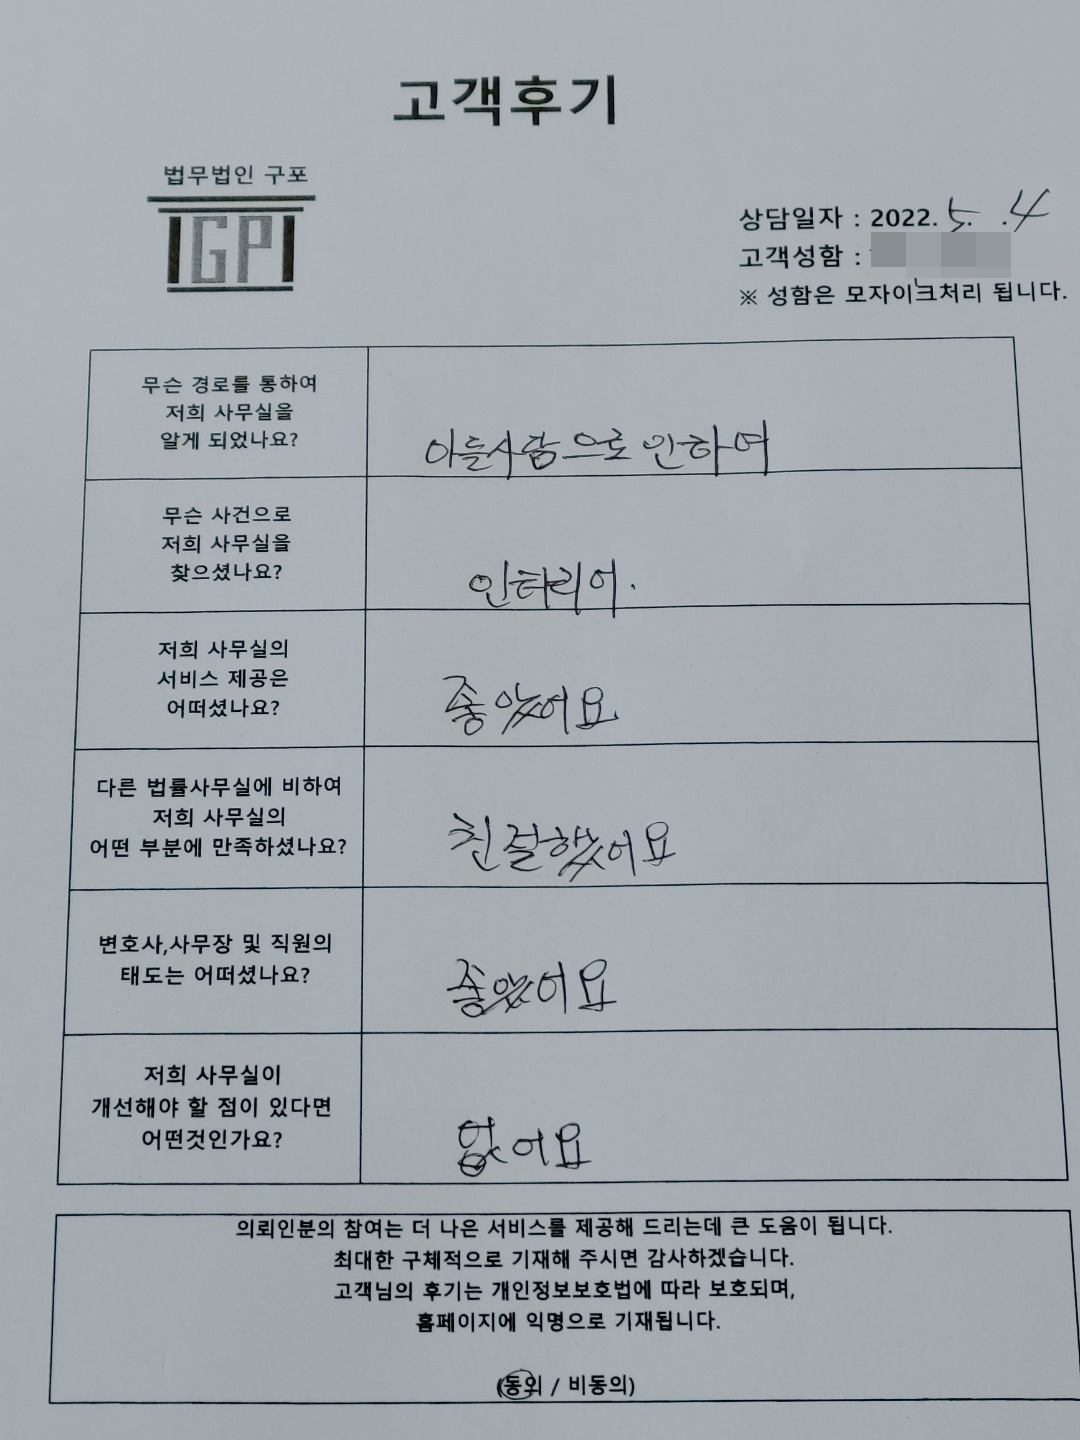 고객후기
법무법인 구포
IGPI
상담일자 : 2022. 5. .4
고객성함 :
※ 성함은 모자이크처리 됩니다.
무슨 경로를 통하여
저희 사무실을
알게 되었나요?
아들사람으로 인하여
무슨 사건으로
저희 사무실을
찾으셨나요?
인타리어.
저희 사무실의
서비스 제공은
어떠셨나요?
좋았어요
다른 법률사무실에 비하여
저희 사무실의
어떤 부분에 만족하셨나요?
친절했어요
변호사,사무장 및 직원의
태도는 어떠셨나요?
좋았어요
저희 사무실이
개선해야 할 점이 있다면
어떤것인가요?
없어요
의뢰인분의 참여는 더 나은 서비스를 제공해 드리는데 큰 도움이 됩니다.
최대한 구체적으로 기재해 주시면 감사하겠습니다.
고객님의 후기는 개인정보보호법에 따라 보호되며,
홈페이지에 익명으로 기재됩니다.
(동의 / 비동의)